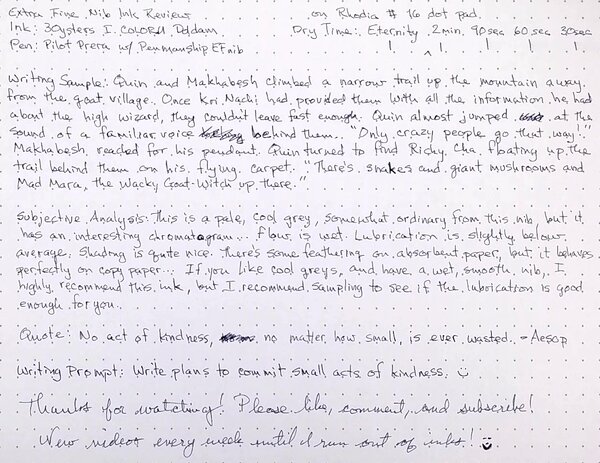 Extra Fine Nib Ink Review on Rhodia # 16 dot pad.
Ink: 3Oysters I.COLOR.U Doldam Dry Time: Eternity 2min. 90sec 60sec 30sec
Pen: Pilot Prera w/ Penmanship EF nib
Writing Sample: Quin and Makhabesh climbed a narrow trail up the mountain away
from the goat village. Once Kri Nachi had provided them with all the information he had
about the high wizard, they couldn't leave fast enough. Quin almost jumped at the
sound of a familiar voice behind them. "Only crazy people go that way!"
Makhabesh reached for his pendant. Quin turned to find Richy Cha floating up the
trail behind them on his flying carpet. "There's snakes and giant mushrooms and
Mad Mara, the Wacky Goat-Witch up there."
Subjective Analysis: This is a pale, cool grey, somewhat ordinary from this nib, but it
has an interesting chromatogram... Flow is wet. Lubrication is slightly below
average. Shading is quite nice. There's some feathering on absorbent paper, but it behaves
perfectly on copy paper... If you like cool greys, and have a wet, smooth nib, I
highly recommend this ink, but I recommend sampling to see if the lubrication is good
enough for you.
Quote: No act of kindness, no matter how small, is ever wasted. - Aesop
Writing Prompt: Write plans to commit small acts of kindness.
Thanks for watching! Please like, comment, and subscribe!
New videos every week until I run out of inks!